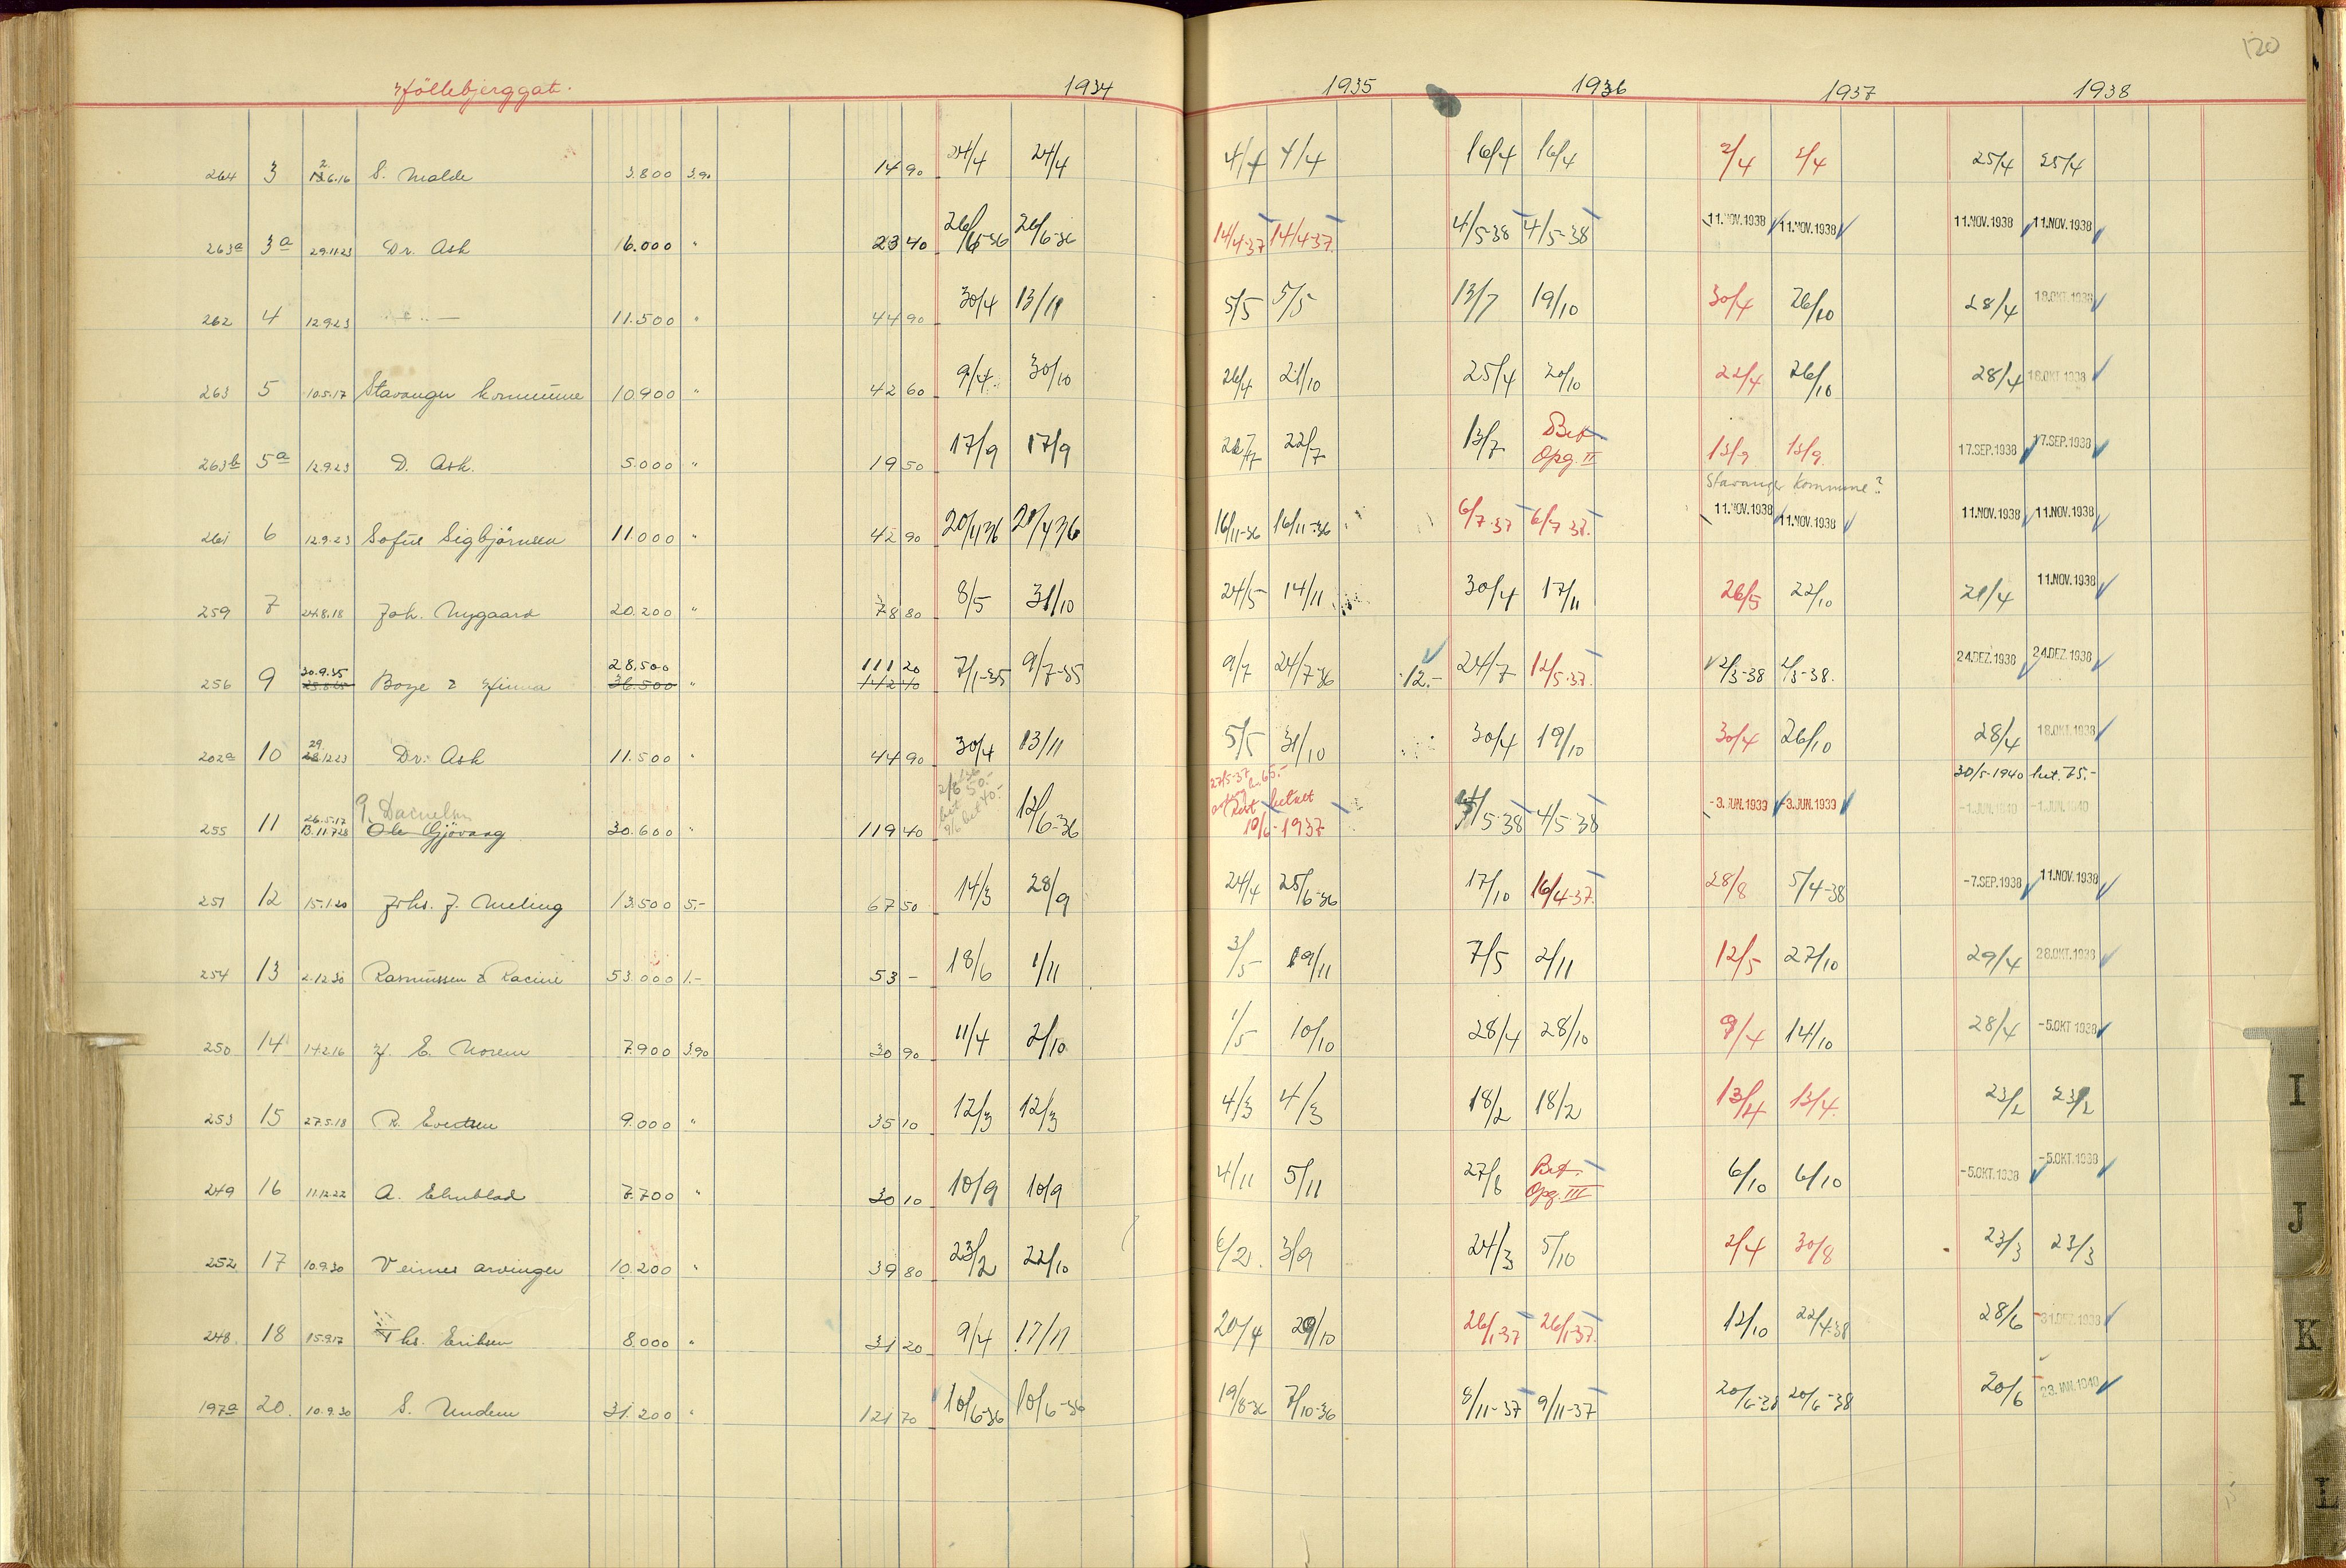 120
1934 1935 1936 1937 1938
264 3 S. Malde 3.800 3.90 14 90 24/4 24/4 4/4 4/4 16/4 16/4 2/4 2/4 25/4 25/4
263a 3a 29.11.23 Dr. Ask 16.000 " 23 40 26/6-36 26/6-36 14/4-37 14/4-37. 4/5-38 4/5-38 11.NOV.1938 11.NOV.1938 11.NOV.1938 11.NOV.1938
262 4 12.9.23 11.500 " 44 90 30/4 13/11 5/5 5/5 13/7 19/10 30/4 26/10 28/4 18.OKT.1938
263 5 10.5.17 Stavanger kommune 10.900 " 42 60 9/4 30/10 26/4 21/10 25/4 20/10 22/4 26/10 28/4 18.OKT.1938
263b 5a 12.9.23 D. Ask. 5.000 " 19 50 17/9 17/9 22/7 22/7 13/7 Bet. Opg. II 13/9 13/9. 17.SEP.1938 17.SEP.1938
Stavanger kommune?
261 6 12.9.23 Sofie Sigbjörnsen 11.000 " 42 90 20/4 36 20/4 36 16/11-36 16/11-36 6/7-37 6/7-37. 11.NOV.1938 11.NOV.1938 11.NOV.1938 11.NOV.1938
259 7 24.8.18 Joh. Nygaard 20.200 " 78 80 8/5 31/10 24/5 14/11 30/4 17/11 26/5 22/10 21/4 11.NOV.1938
30.9.35 28.500 111 20
256 9 Boye & Hinna 36.500 " 142 40 7/1-35 9/7-35 9/7 24/7-36 12.- 24/7 12/5-37. 2/3-38 2/3-38. 24.DEZ.1938 24.DEZ.1938
202a 10 29.12.23 Dr. Ask 11.500 " 44 90 30/4 13/11 5/5 31/10 30/4 19/10 30/4 26/10 28/4 18.OKT.1938
2/6 36 bet 50.- 9/6 bet 40.- 27/5-37 65.- Rest betalt 10/6-1937 30/5-1940 bet. 75.-
26.5.17 Danielsen
255 11 13.11.28 Ole Gjövaag 30.600 " 119 40 12/6-36 4/5-38 4/5-38 -3.JUN.1939 -3.JUN.1939 -1.JUN.1940 -1.JUN.1940
251 12 15.1.20 Johs. J. Meling 13.500 5.- 67 50 14/3 28/9 24/4 25/6-36 17/10 16/4-37. 28/8 5/4-38 -7.SEP.1938 11.NOV.1938
254 13 2.12.30 Rasmussen & Racine 53.000 1.- 53 - 18/6 1/11 3/5 19/11 7/5 2/11 12/5 27/10 29/4 28.OKT.1938
250 14 14.2.16 H. E. Norem 7.900 3.90 30 90 11/4 2/10 1/5 10/10 28/4 28/10 9/4 14/10 28/4 -5.OKT.1938
253 15 27.5.18 R. Evertsen 9.000 " 35 10 12/3 12/3 4/3 4/3 18/2 18/2 13/4 13/4. 23/2 23/2
249 16 11.12.22 A. Ehnblad 7.700 " 30 10 10/9 10/9 4/11 5/11 27/8 Bet. Opg. III 6/10 6/10 -5.OKT.1938 -5.OKT.1938
252 17 10.9.30 Veimes arvinger 10.200 " 39 80 23/2 22/10 6/2. 3/9 24/3 5/10 2/4 30/8 23/3 23/3
248. 18 15.9.17 Ths. Eriksen 8.000 " 31 20 9/4 17/11 20/4 29/10 26/1-37 26/1-37. 12/10 22/4-38 28/6 -31.DEZ.1938
197a 20. 10.9.30 S. Undem 31.200 " 121 70 10/6-36 10/6-36 19/8-36 7/10-36 8/11-37 9/11-37 20/6-38 20/6-38 20/6 23.JAN.1940
I
J
K
L